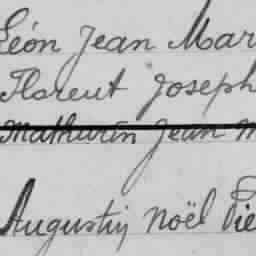 Léon Jean Mar
Florent Joseph
Mathurin Jean M
Augustin Noël Pie